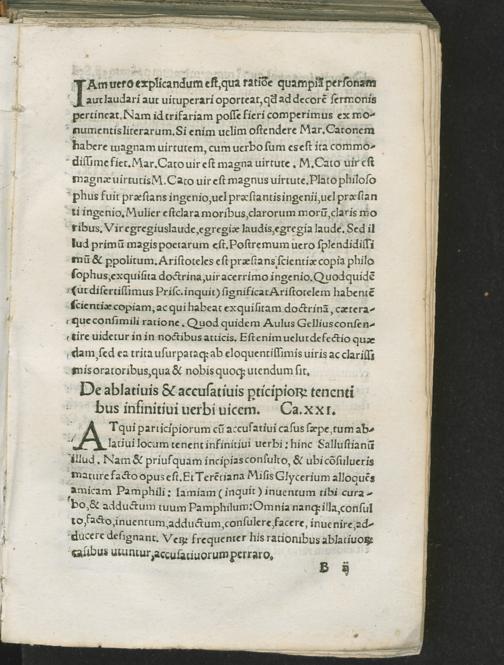 IAm uero explicandum est, qua ratiõe quampiã personam
aut laudari aut uituperari oporteat, qđ ad decorẽ sermonis
pertineat. Nam id trifariam posse fieri comperimus ex mo-
numentis literarum. Si enim uelim ostendere Mar. Catonem
habere magnam uirtutem, cum uerbo sum es est ita commo-
dissime fiet. Mar. Cato uir est magna uirtute. M. Cato uir est
magnæ uirtutis M. Cato uir est magnus uirtute. Plato philoso
phus fuit præstans ingenio, uel præstantis ingenii, uel præstan
ti ingenio. Mulier est clara moribus, clarorum morũ, claris mo
ribus. Vir egregius laude, egregiæ laudis, egregia laude. Sed il
lud primũ magis poetarum est. Postremum uero splendidissi
mũ & ppolitum. Aristoteles est præstans scientiæ copia philo
sophus, exquisita doctrina, uir acerrimo ingenio. Quod quidẽ
(ut disertissimus Prisc. inquit) significat Aristotelem habentẽ
scientiæ copiam, ac qui habeat exquisitam doctrinã, cætera-
que consimili ratione. Quod quidem Aulus Gellius consen-
tire uidetur in in noctibus atticis. Est enim uelut defectio quæ
dam, sed ea trita usurpataq; ab eloquentissimis uiris ac clarissi
mis oratoribus, qua & nobis quoq; utendum sit.
De ablatiuis & accusatiuis pticipioꝝ tenenti
bus infinitiui uerbi uicem. Ca. XXI.
ATqui participiorum cũ accusatiui casus sæpe, tum ab-
latiui locum tenent infinitiui uerbi: hinc Sallustianũ
illud. Nam & priusquam incipias consulto, & ubi cõsulueris
mature facto opus est. Et Terẽtiana Misis Glycerium alloquẽs
amicam Pamphili: Iamiam (inquit) inuentum tibi cura-
bo, & adductum tuum Pamphilum: Omnia nanq; illa, consul
to, facto, inuentum, adductum, consulere, facere, inuenire, ad-
ducere designant. Veꝝ frequenter his rationibus ablatiuoꝝ
casibus utuntur, accusatiuorum perraro.
B ij